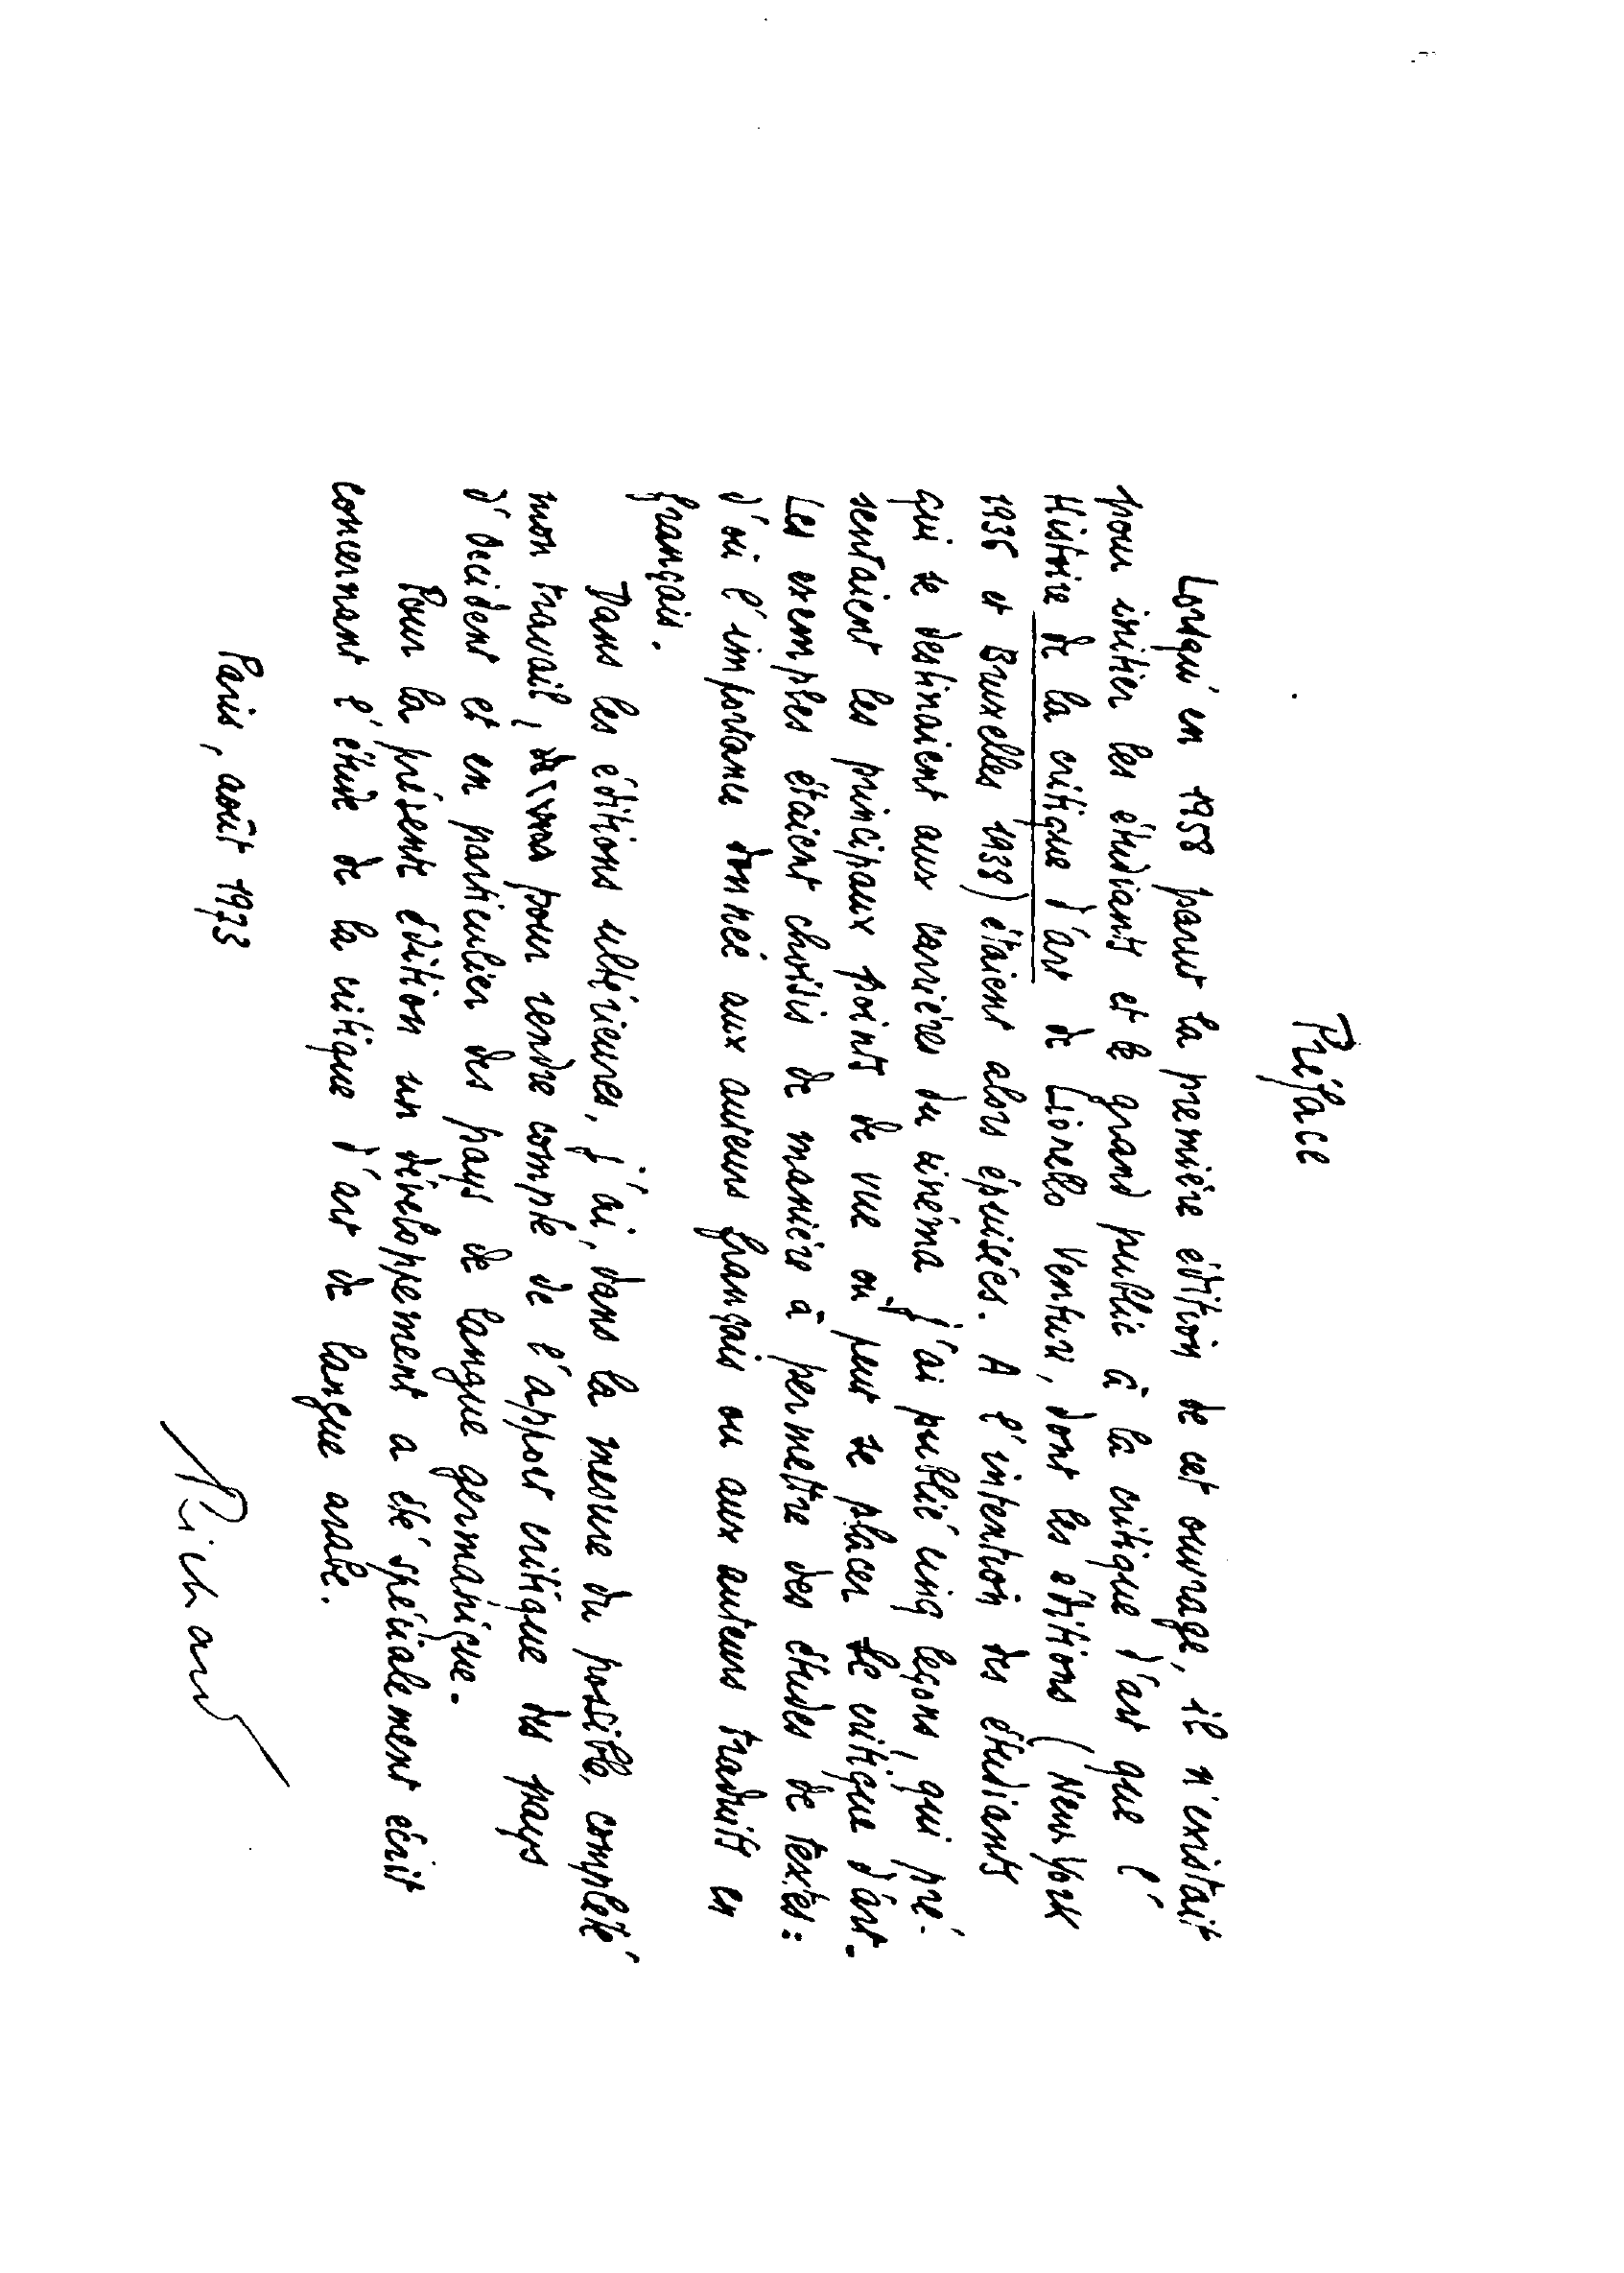 Préface
Lorsqu'en 1958 parut la première édition de cet ouvrage, il n'existait
pour initier les étudiants et le grand public à la critique d'art que l'
Histoire de la critique d'art de Lionello Venturi, dont les éditions (New York
1936 et Bruxelles 1938) étaient alors épuisées. A l'intention des étudiants
qui se destinaient aux carrières du cinéma j'ai publié cinq leçons, qui pré-
sentaient les principaux points de vue où peut se placer le critique d'art.
Les exemples étaient choisis de manière à permettre des études de textes:
d'où l'importance donnée aux auteurs français ou aux auteurs traduits en
français.
Dans les éditions ultérieures, j'ai, dans la mesure du possible, complété
mon travail, pour rendre compte de l'apport critique des pays
d'occident et en particulier des pays de langue germanique.
Pour la présente édition un développement a été spécialement écrit
concernant l'étude de la critique d'art de langue arabe.
Paris, août 1973
Richard